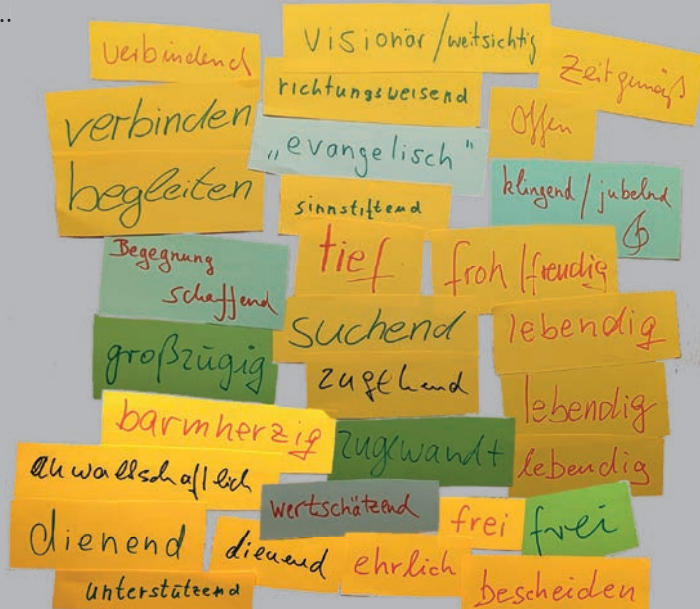 ..
verbindend
visionär / weitsichtig
zeitgemäß
richtungsweisend
offen
verbinden
„evangelisch"
begleiten
klingend / jubelnd
sinnstiftend
Begegnung
schaffend
tief
froh / freudig
suchend
lebendig
großzügig
zugehend
lebendig
barmherzig
zugewandt
lebendig
anwaltschaftlich
wertschätzend
frei
frei
dienend
dienend
ehrlich
bescheiden
unterstützend